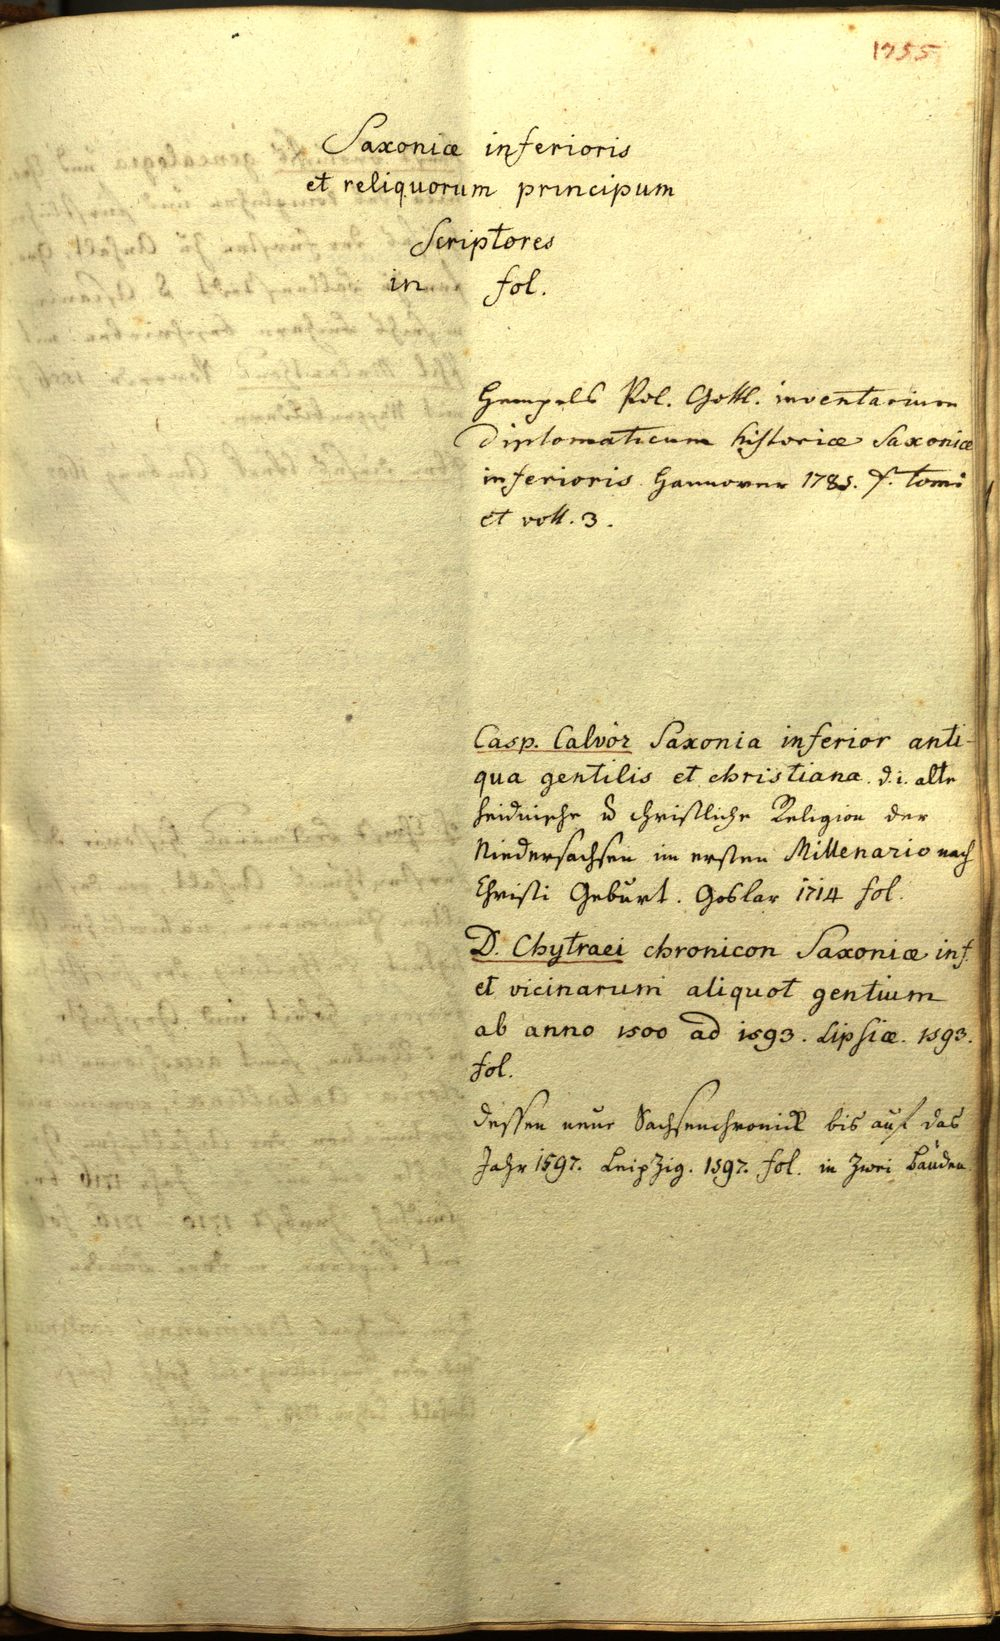 1755
Saxoniæ inferioris
et reliquorum principum
Scriptores
in fol.
Hempels Pol. Gottl. inventarium
diplomaticum historiæ Saxoniæ
inferioris Hannover 1785. f. tomi
et voll. 3.
Casp. Calvör Saxonia inferior anti-
qua gentilis et christiana. d. i. alte
heidnische u christliche Religion der
Niedersachsen im ersten Millenario nach
Christi Geburt. Goslar 1714 fol.
D. Chytraei chronicon Saxoniæ inf.
et vicinarum aliquot gentium
ab anno 1500 ad 1593. Lipsiæ. 1593.
fol.
dessen neue Sachsenchronick bis auf das
Jahr 1597. Leipzig. 1597. fol. in zwei bänden